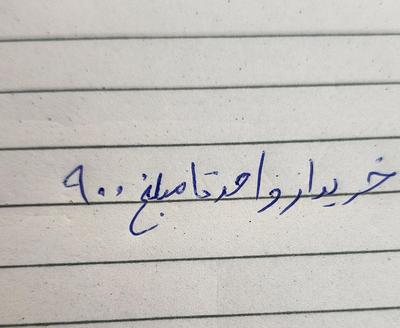 خریدار واحد تا مبلغ ۹۰۰